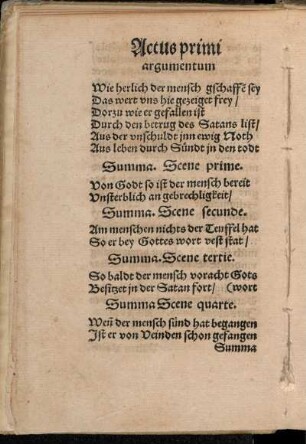 Actus primi
argumentum
Wie herlich der mensch gschaffē sey
Das wert vns hie gezeiget frey/
Dorzu wie er gefallen ist
Durch den betrug des Satans list/
Aus der vnschuldt jnn ewig Noth
Aus leben durch Sündt in den todt
Summa. Scene prime.
Von Godt so ist der mensch bereit
Vnsterblich an gebrechligkeit/
Summa. Scene secunde.
Am menschen nichts der Teuffel hat
So er bey Gottes wort vest stat/
Summa. Scene tertie.
So baldt der mensch voracht Gots
Besitzet jn der Satan fort/ (wort
Summa Scene quarte.
Weñ der mensch sünd hat begangen
Ist er von Veinden schon gefangen
Summa